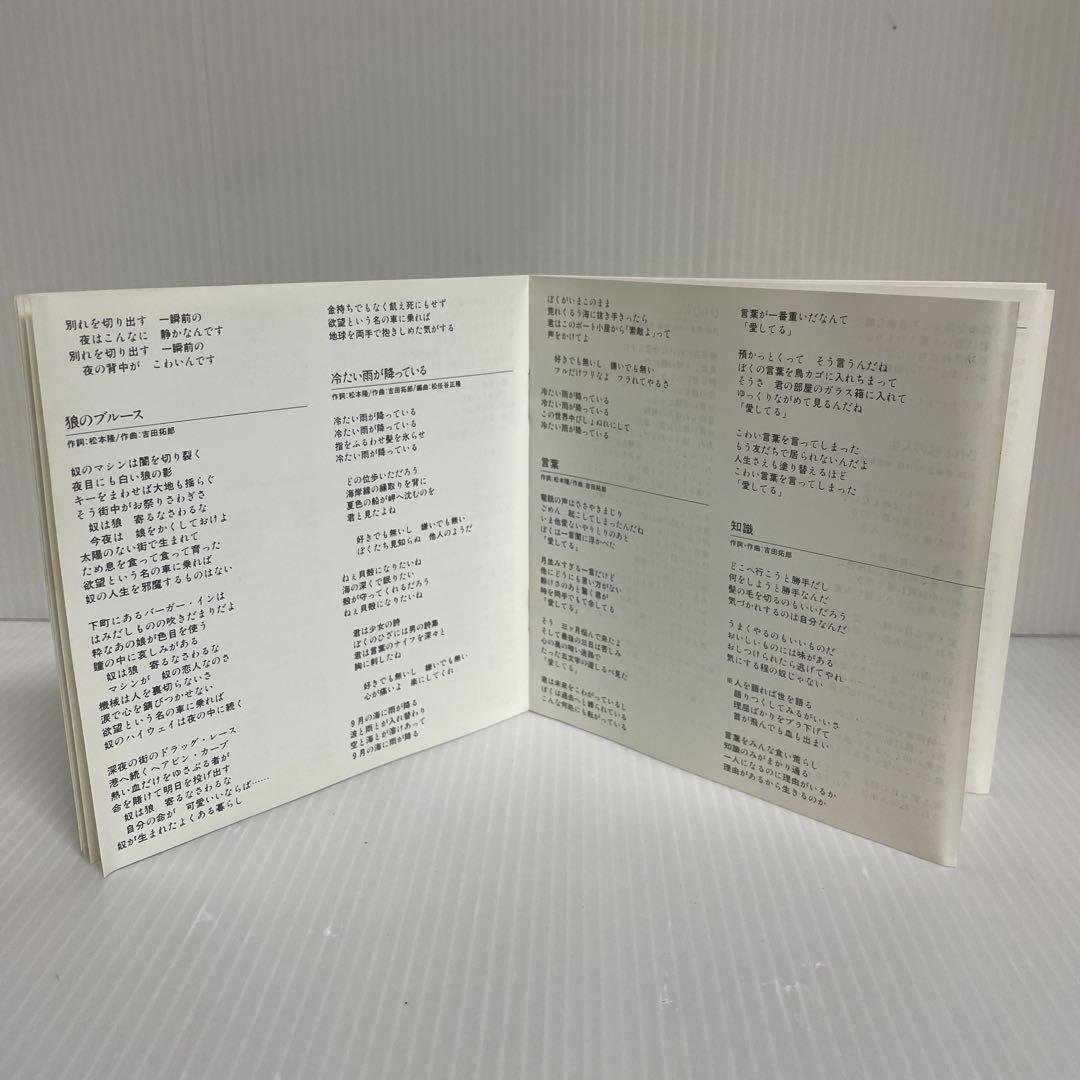 別れを切り出す　一瞬前の
夜はこんなに　静かなんです
別れを切り出す　一瞬前の
夜の背中が　こわいんです
狼のブルース
作詞:松本隆/作曲:吉田拓郎
奴のマシンは闇を切り裂く
夜目にも白い狼の影
キーをまわせば大地も揺らぐ
そう街中がお祭りさわぎさ
奴は狼　寄るなさわるな
今夜は　娘をかくしておけよ
太陽のない街で生まれて
ため息を食って食って育った
欲望という名の車に乗れば
奴の人生を邪魔するものはない
下町にあるバーガー・インは
はみだしものの吹きだまりだよ
粋なあの娘が色目を使う
瞳の中に哀しみがある
奴は狼　寄るなさわるな
マシンが　奴の恋人なのさ
機械は人を裏切らないさ
涙で心を錆びつかせない
欲望という名の車に乗れば
奴のハイウェイは夜の中に続く
深夜の街のドラッグ・レース
港へ続くヘアピン・カーブ
熱い血だけをゆさぶる者が
命を賭けて明日を投げ出す
奴は狼　寄るなさわるな
自分の命が　可愛いいならば……
奴が生まれたよくある暮らし
金持ちでもなく飢え死にもせず
欲望という名の車に乗れば
地球を両手で抱きしめた気がする
冷たい雨が降っている
作詞:松本隆/作曲:吉田拓郎/編曲:松任谷正隆
冷たい雨が降っている
冷たい雨が降っている
指をふるわせ髪を氷らせ
冷たい雨が降っている
どの位歩いただろう
海岸線の縁取りを背に
夏色の船が岬へ沈むのを
君と見たよね
好きでも無いし　嫌いでも無い
ぼくたち見知らぬ　他人のようだ
ねぇ貝殻になりたいね
海の深くで眠りたい
殻が守ってくれるだろう
ねぇ貝殻になりたいね
君は少女の詩
ぼくのひざには男の詩集
君は言葉のナイフを深々と
胸に刺したね
好きでも無いし　嫌いでも無い
心が痛いよ　楽にしてくれ
9月の海に雨が降る
波と雨とが入れ替わり
空と海とが溶けあって
9月の海に雨が降る
ぼくがいまこのまま
荒れくるう海に抜き手きったら
君はこのボート小屋から「素敵よ」って
声をかけてよ
好きでも無いし　嫌いでも無い
フルだけフリなよ　フラれてやるさ
冷たい雨が降っている
冷たい雨が降っている
この世界中びしょぬれにして
冷たい雨が降っている
言葉
作詞:松本隆/作曲:吉田拓郎
電話の声はささやきまじり
ごめん　起こしてしまったんだね
いま他愛ないやりとりのあと
ぼくは一言闇に浮かべた
「愛してる」
月並みすぎる一言だけど
他にどうにも言い方がない
静けさのあと驚く君が
時を両手でもて余してる
「愛してる」
そう　三ヶ月悩んで来たよ
そして最後の三日は苦しみ
心の奥の暗い迷路で
たった五文字の道しるべ見た
「愛してる」
君は未来をこわがっているし
ぼくは過去へと縛られている
こんな何処にも転がっている
言葉が一番重いだなんて
「愛してる」
預かっとくって　そう言うんだね
ぼくの言葉を鳥カゴに入れちまって
そうさ　君の部屋のガラス箱に入れて
ゆっくりながめて見るんだね
「愛してる」
こわい言葉を言ってしまった
もう友だちで居られないんだよ
人生さえも塗り替えるほど
こわい言葉を言ってしまった
「愛してる」
知識
作詞・作曲:吉田拓郎
どこへ行こうと勝手だし
何をしようと勝手なんだ
髪の毛を切るのもいいだろう
気づかれするのは自分なんだ
うまくやるのもいいものだ
おいしいものには味がある
おしつけられたら逃げてやれ
気にする程の奴じゃない
※人を語れば世を語る
語りつくしてみるがいいさ
理屈ばかりをブラ下げて
首が飛んでも血も出まい
言葉をみんな食い荒らし
知識のみがまかり通る
一人になるのに理由がいるか
理由があるから生きるのか